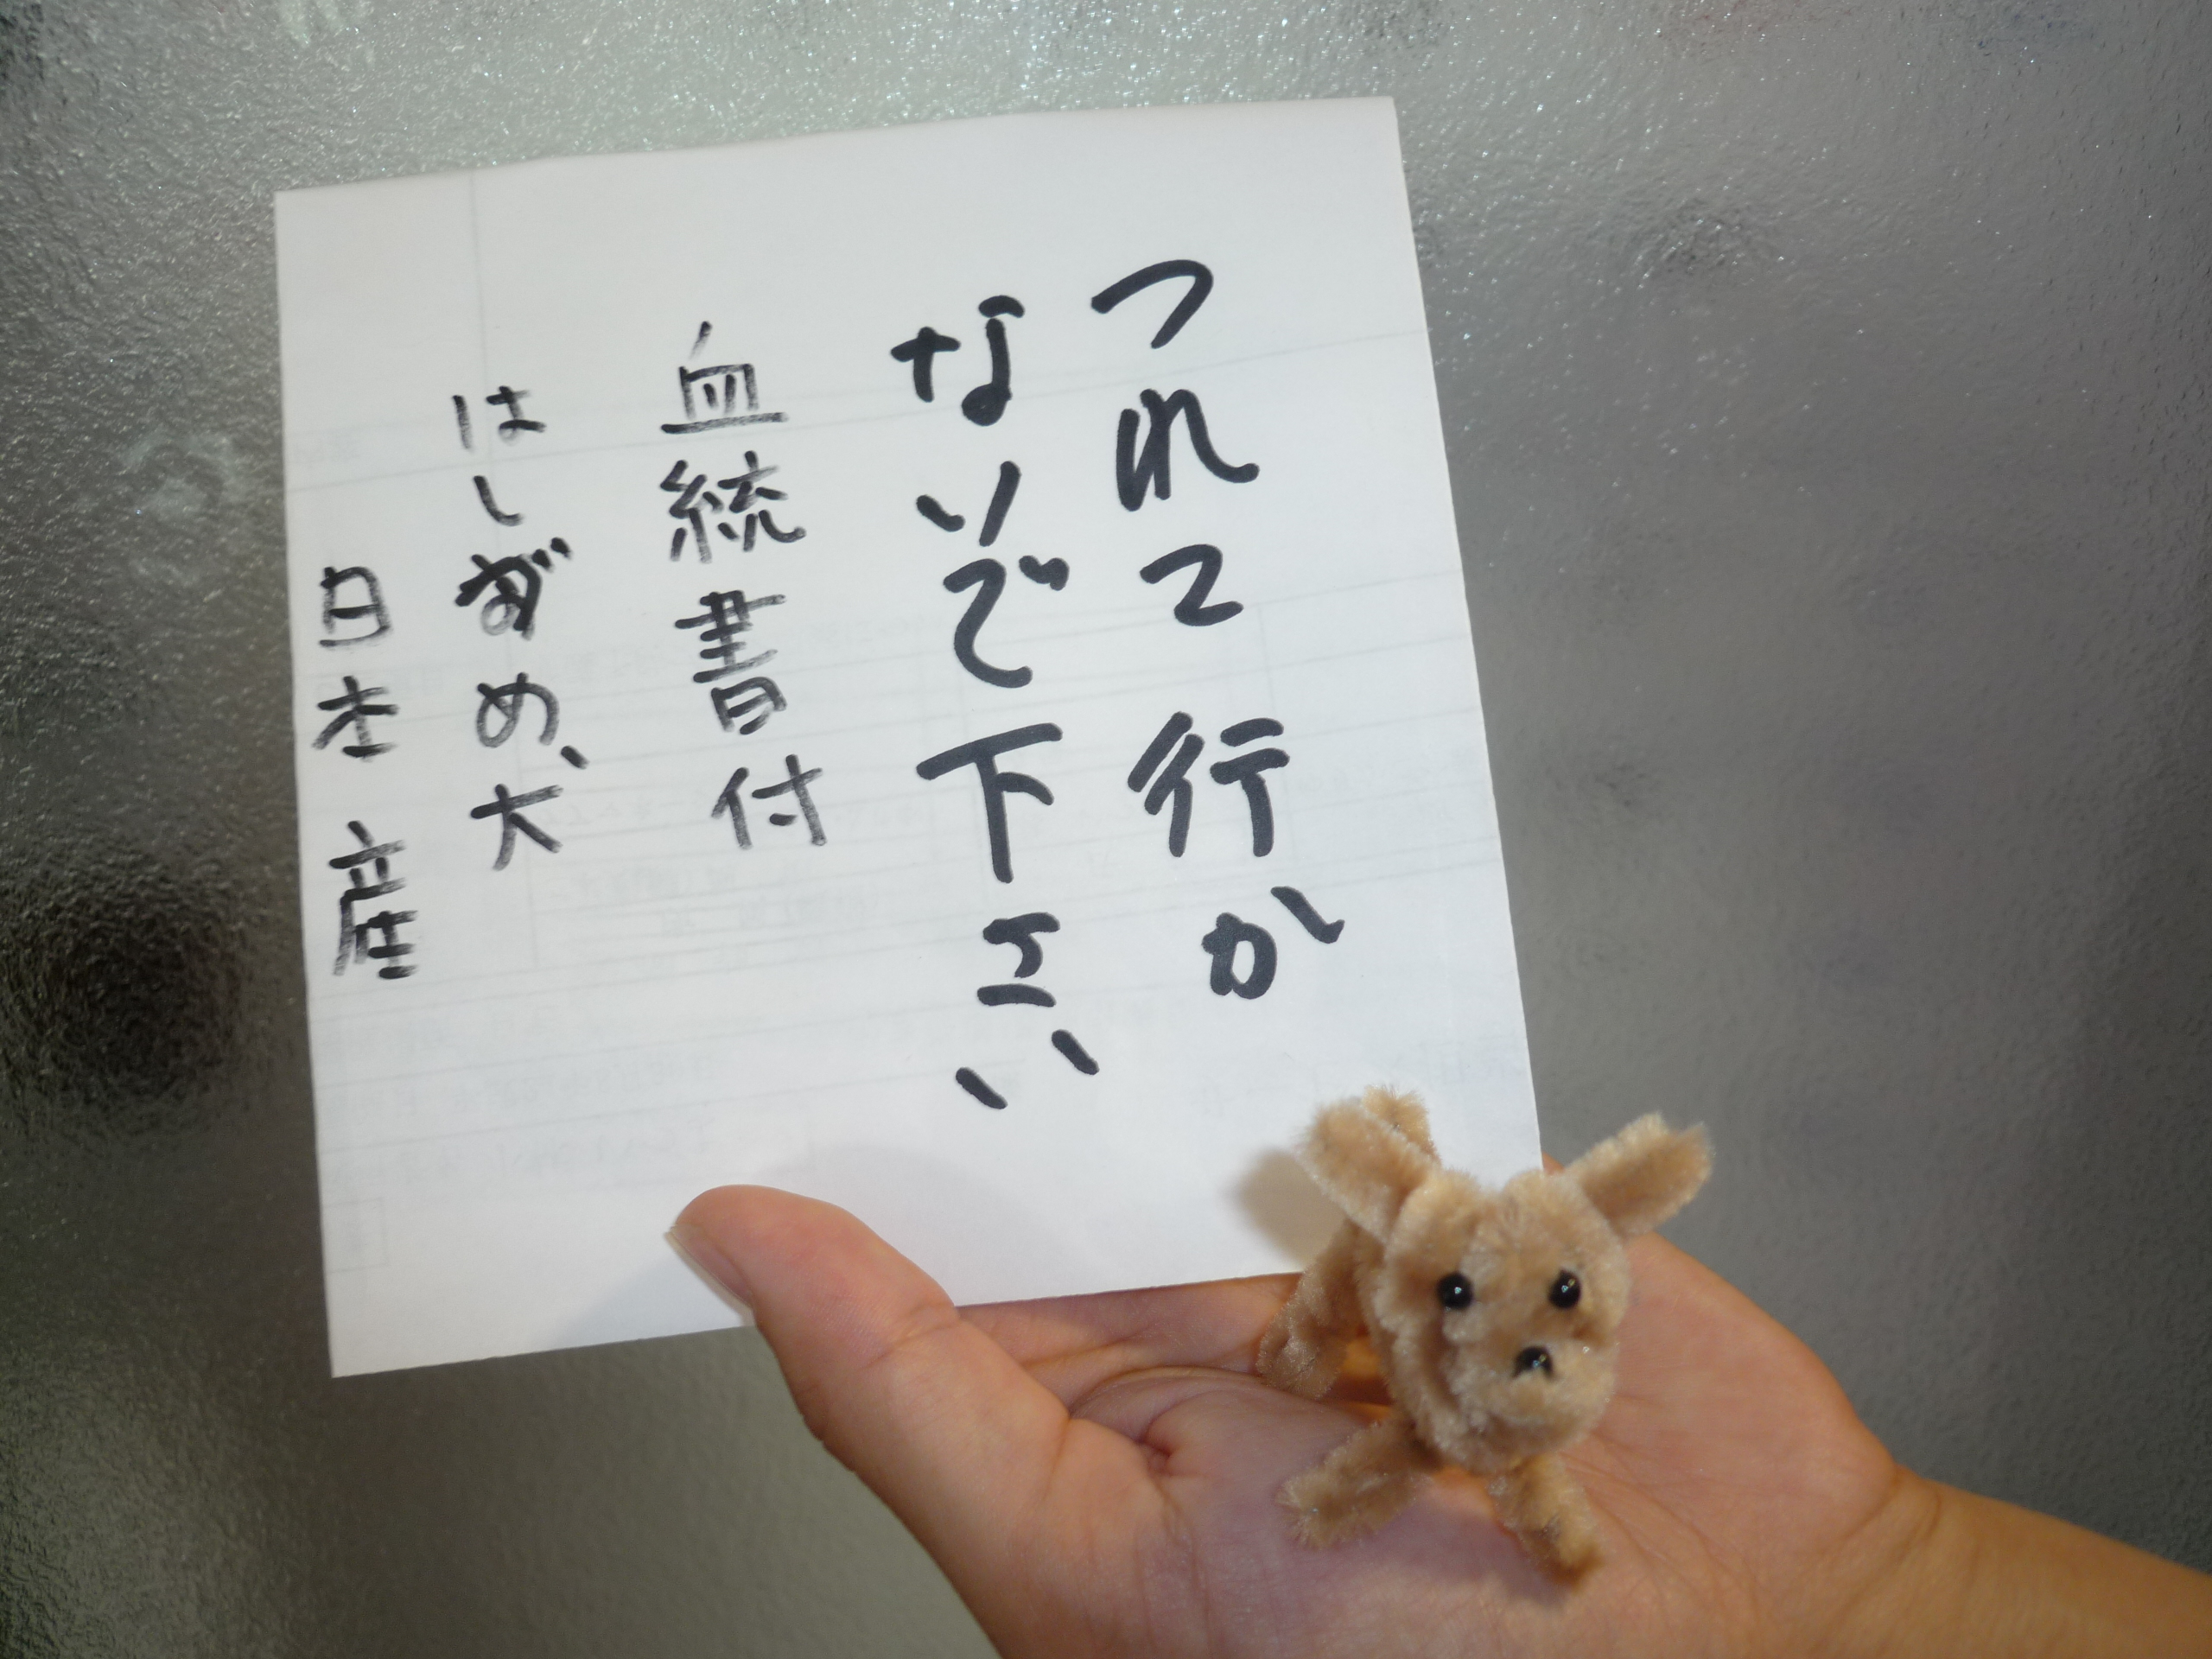 つれて行か
ないで下さい
血統書付
はしがめ、大
日本産